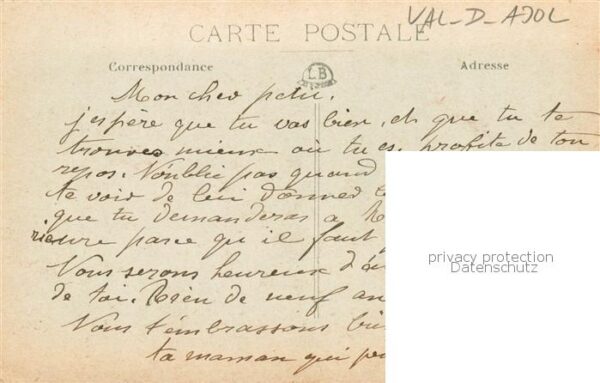 VAL-D-AJOL
CARTE POSTALE
Correspondance
LB
Adresse
Mon cher petit,
j'espère que tu vas bien, et que tu te
trouves mieux où tu es, profite de ton
repos. N'oublie pas quand
te voir de lui donner
que tu demanderas a
parce qu'il faut
Nous serons heureux
de toi. Rien de neuf
Nous t'embrassons
ta maman qui
privacy protection
Datenschutz